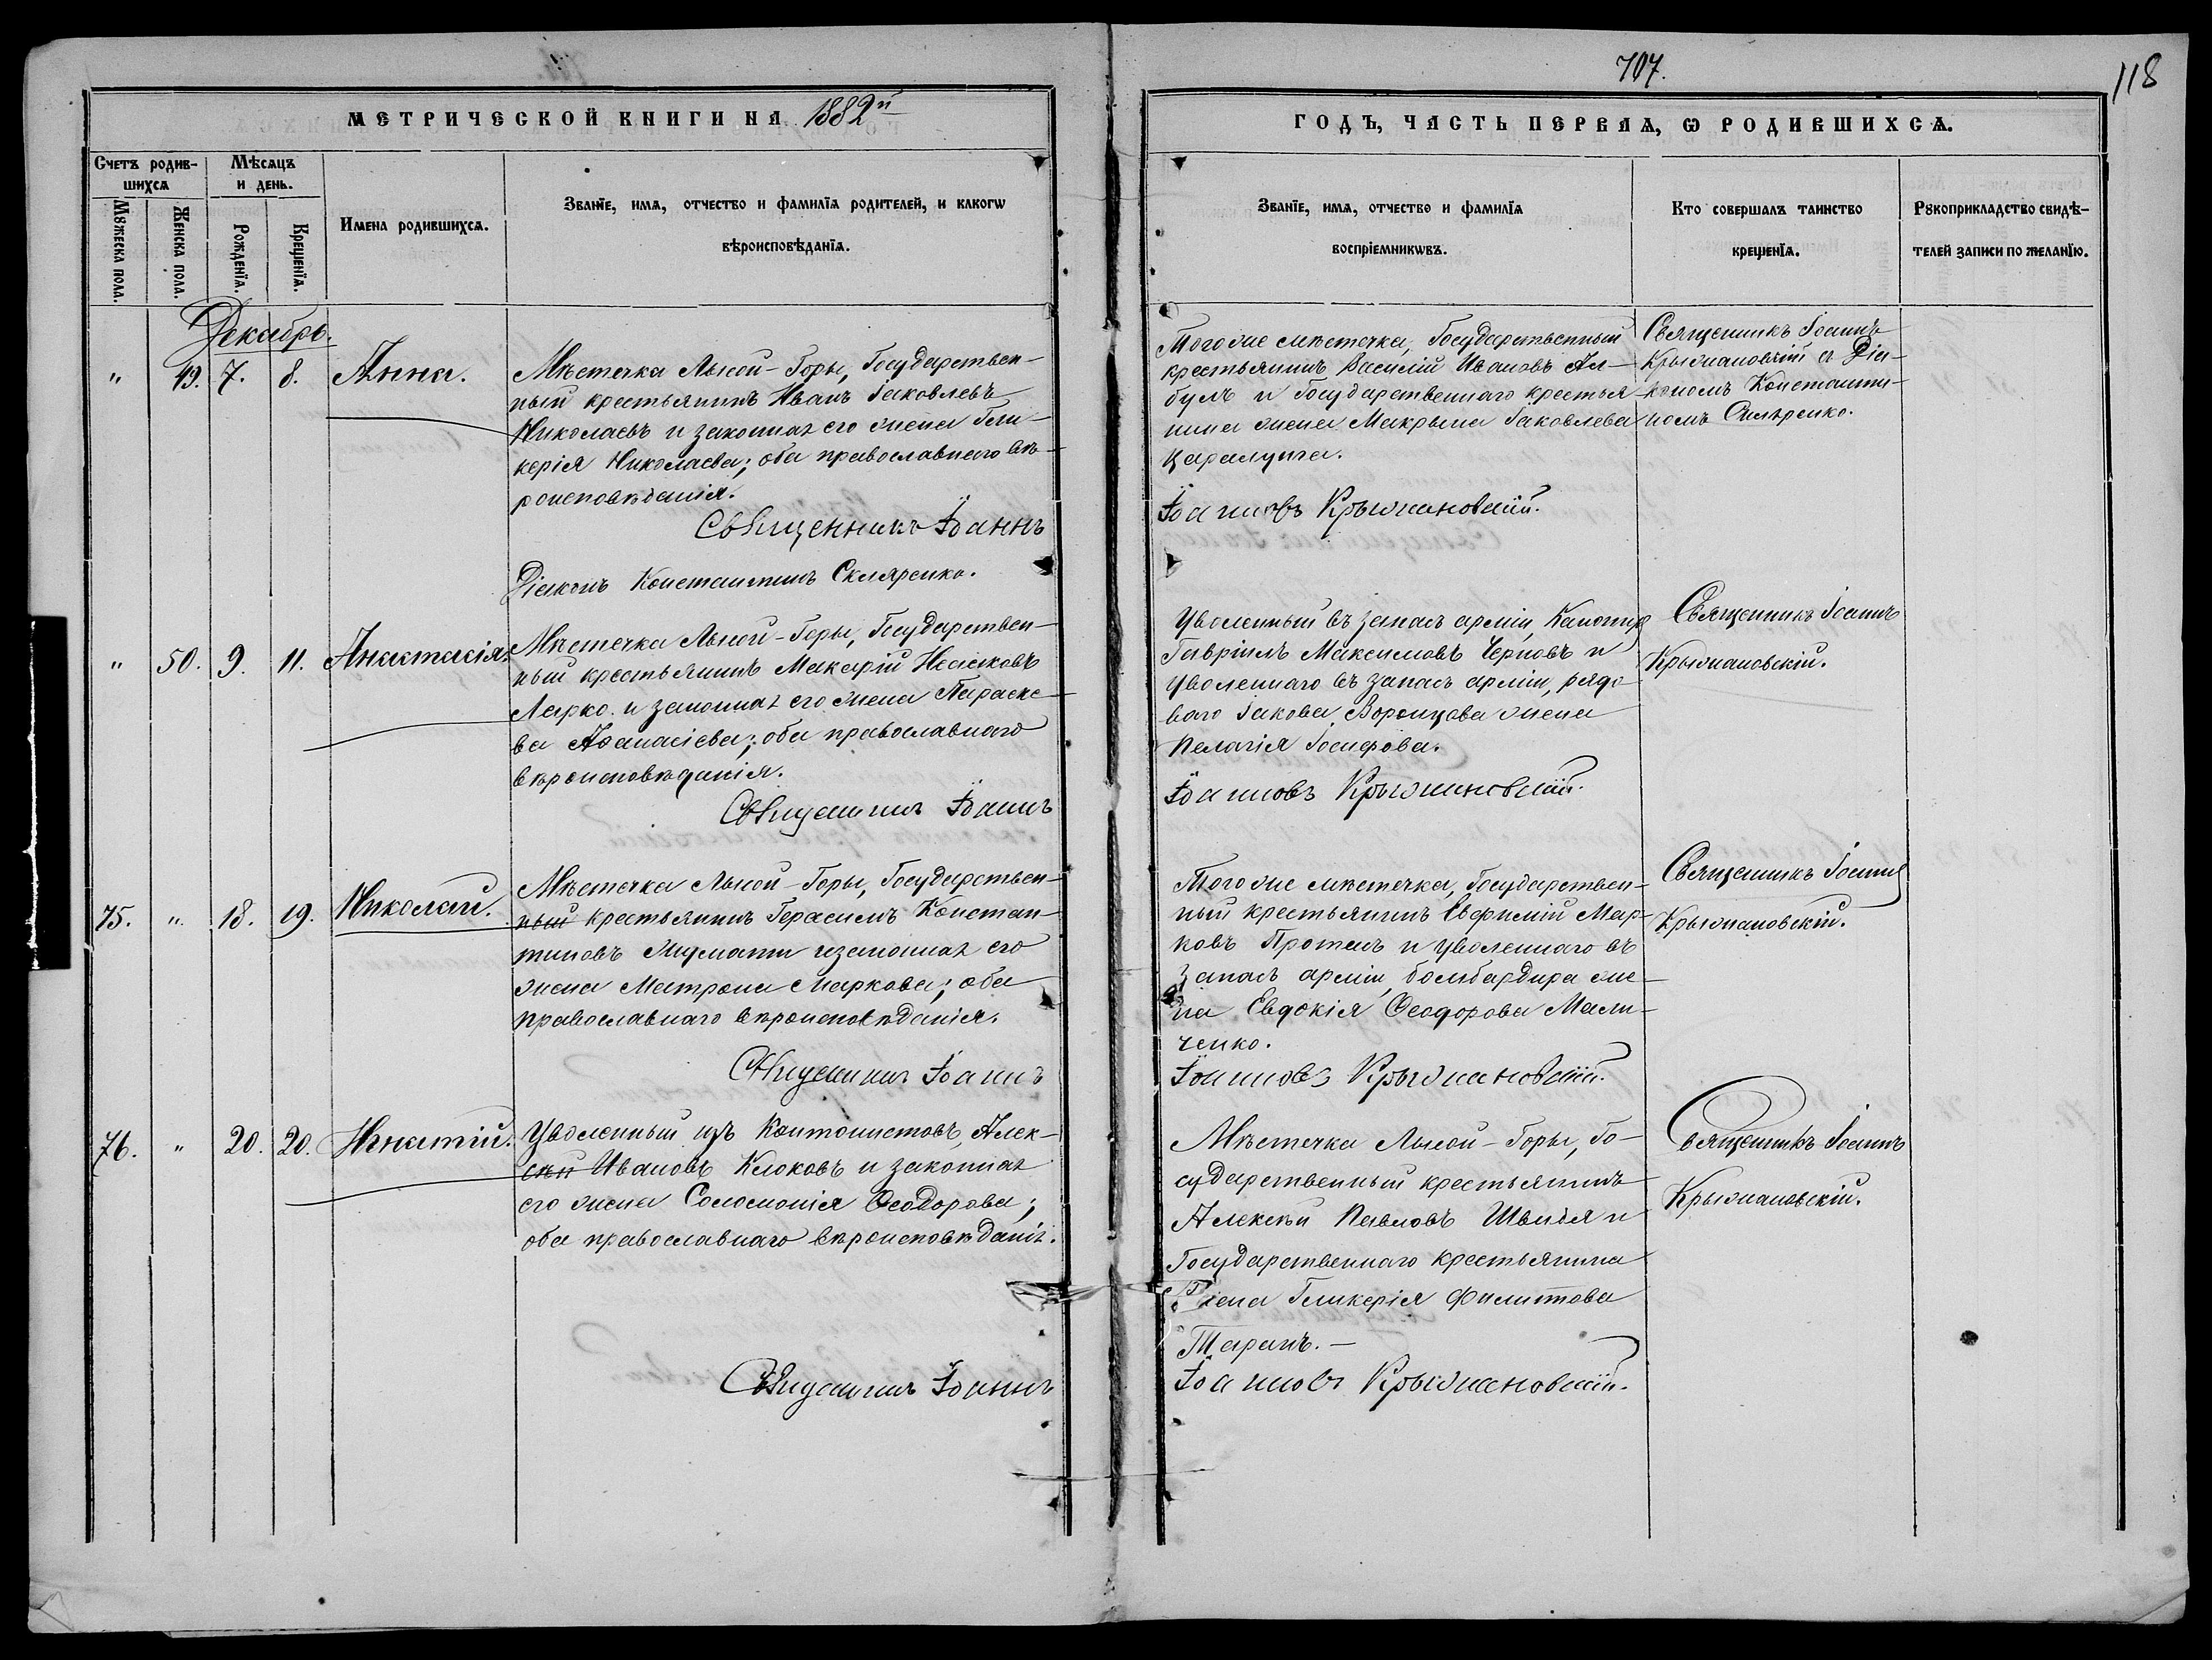 707.
118
МЕТРИЧЕСКОЙ КНИГИ НА 1882й
ГОДЪ, ЧАСТЬ ПЕРВАЯ, Ѡ РОДИВШИХСѦ.
Счетъ родив-
шихсѧ
Мѣсѧцъ
и день.
Мꙋжеска пола.
Женска пола.
Рожденїѧ.
Крещенїѧ.
Имена родившихсѧ.
Званїе, имѧ, отчество и фамилїѧ родителей, и какогѡ
вѣроисповѣданїѧ.
Званїе, имѧ, отчество и фамилїѧ
воспрїемникѡвъ.
Кто совершалъ таинство
крещенїѧ.
Рꙋкоприкладство свидѣ-
телей записи по желанїю.
Декабрь.
" 49. 7. 8. Анна.
Мѣстечка Лысой-Горы, Государствен-
ный крестьянинъ Иванъ Іаковлевъ
Николаевъ и законная его жена Гли-
керія Николаева; оба православнаго вѣ-
роисповѣданія.
Священникъ Іоаннъ
Діаконъ Константинъ Скляренко.
Тогоже мѣстечка, Государственный
крестьянинъ Василій Ивановъ Ал-
булъ и Государственнаго крестья-
нина жена Макрына Іаковлева
Царалунга.
Іоанновъ Крыжановскій.
Священникъ Іоаннъ
Крыжановскій съ Діа-
кономъ Константи-
номъ Скляренко.
" 50. 9. 11. Анастасія.
Мѣстечка Лысой-Горы, Государствен-
ный крестьянинъ Макарій Исааковъ
Марко. и законная его жена Параске-
ва Аѳанасіева; оба православнаго
вѣроисповѣданія.
Священникъ Іоаннъ
Уволенный въ запасъ арміи, Канонир
Гавріилъ Максимовъ Черновъ и
уволеннаго въ запасъ арміи, рядо-
ваго Іакова Воронцова жена
Пелагія Іосифова.
Іоанновъ Крыжановскій.
Священникъ Іоаннъ
Крыжановскій.
75. " 18. 19. Николай.
Мѣстечка Лысой-Горы, Государствен-
ный крестьянинъ Герасимъ Констан-
тиновъ и законная его
жена Матрона Маркова; оба
православнаго вѣроисповѣданія.
Священникъ Іоаннъ
Тогоже мѣстечка, Государствен-
ный крестьянинъ Евфимій Мар-
ковъ и уволеннаго въ
запасъ арміи, бомбардира же-
на Евдокія Ѳеодорова Мали-
ченко.
Іоанновъ Крыжановскій.
Священникъ Іоаннъ
Крыжановскій.
76. " 20. 20. Игнатій.
Уволенный изъ Кантонистовъ, Алек-
сѣй Ивановъ Клоковъ и законная
его жена Соломонія Ѳеодорова;
оба православнаго вѣроисповѣданія.
Священникъ Іоаннъ
Мѣстечка Лысой-Горы, Го-
сударственный крестьянинъ
Алексѣй Павловъ Швыдя и
Государственнаго крестьянина
жена Гликерія Филиппова
Таранъ.—
Іоанновъ Крыжановскій.
Священникъ Іоаннъ
Крыжановскій.